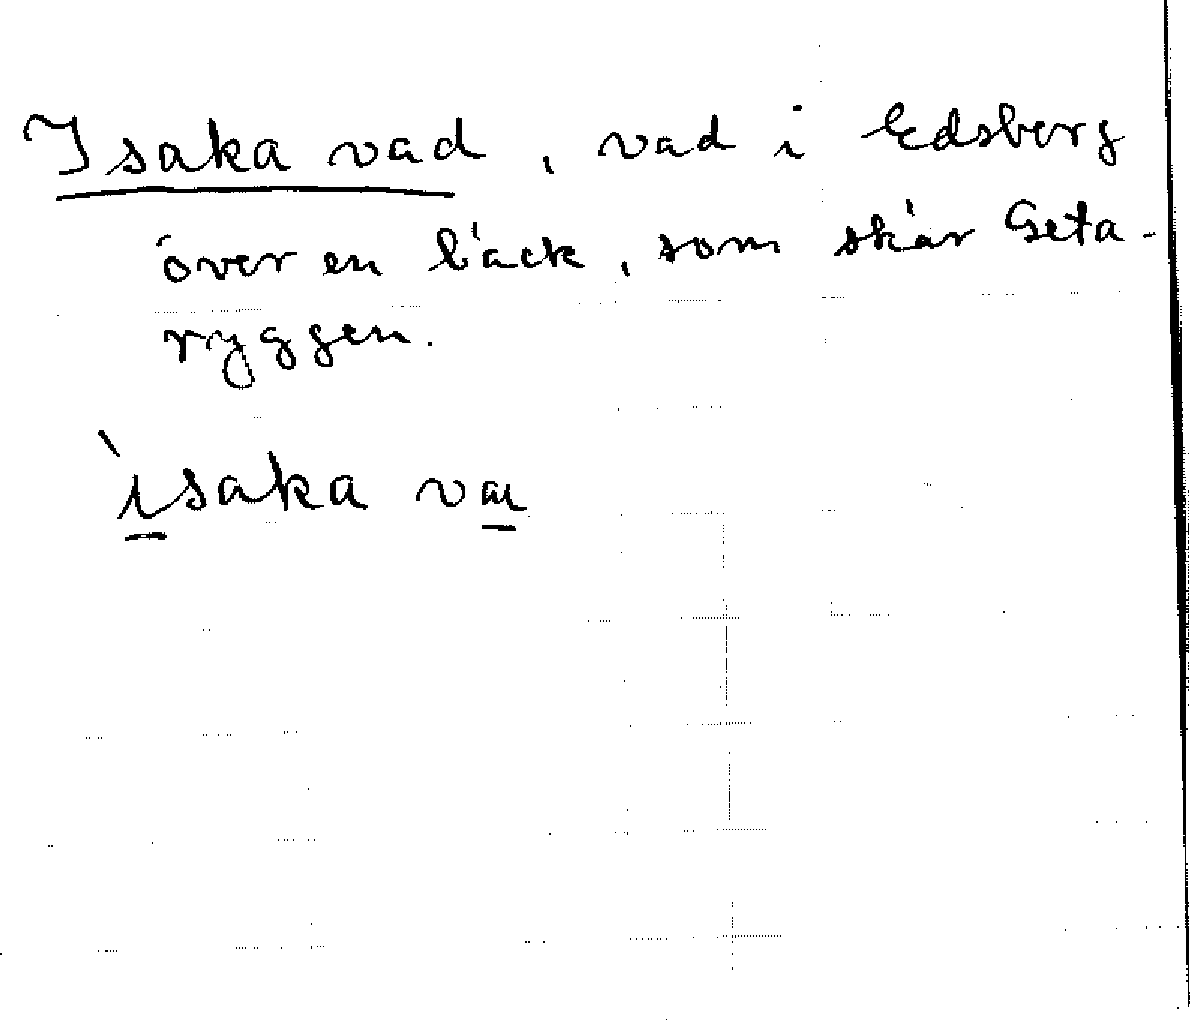 Isaka vad, vad i Edsberg
över en bäck, som skär Geta-
ryggen.
ìsaka va